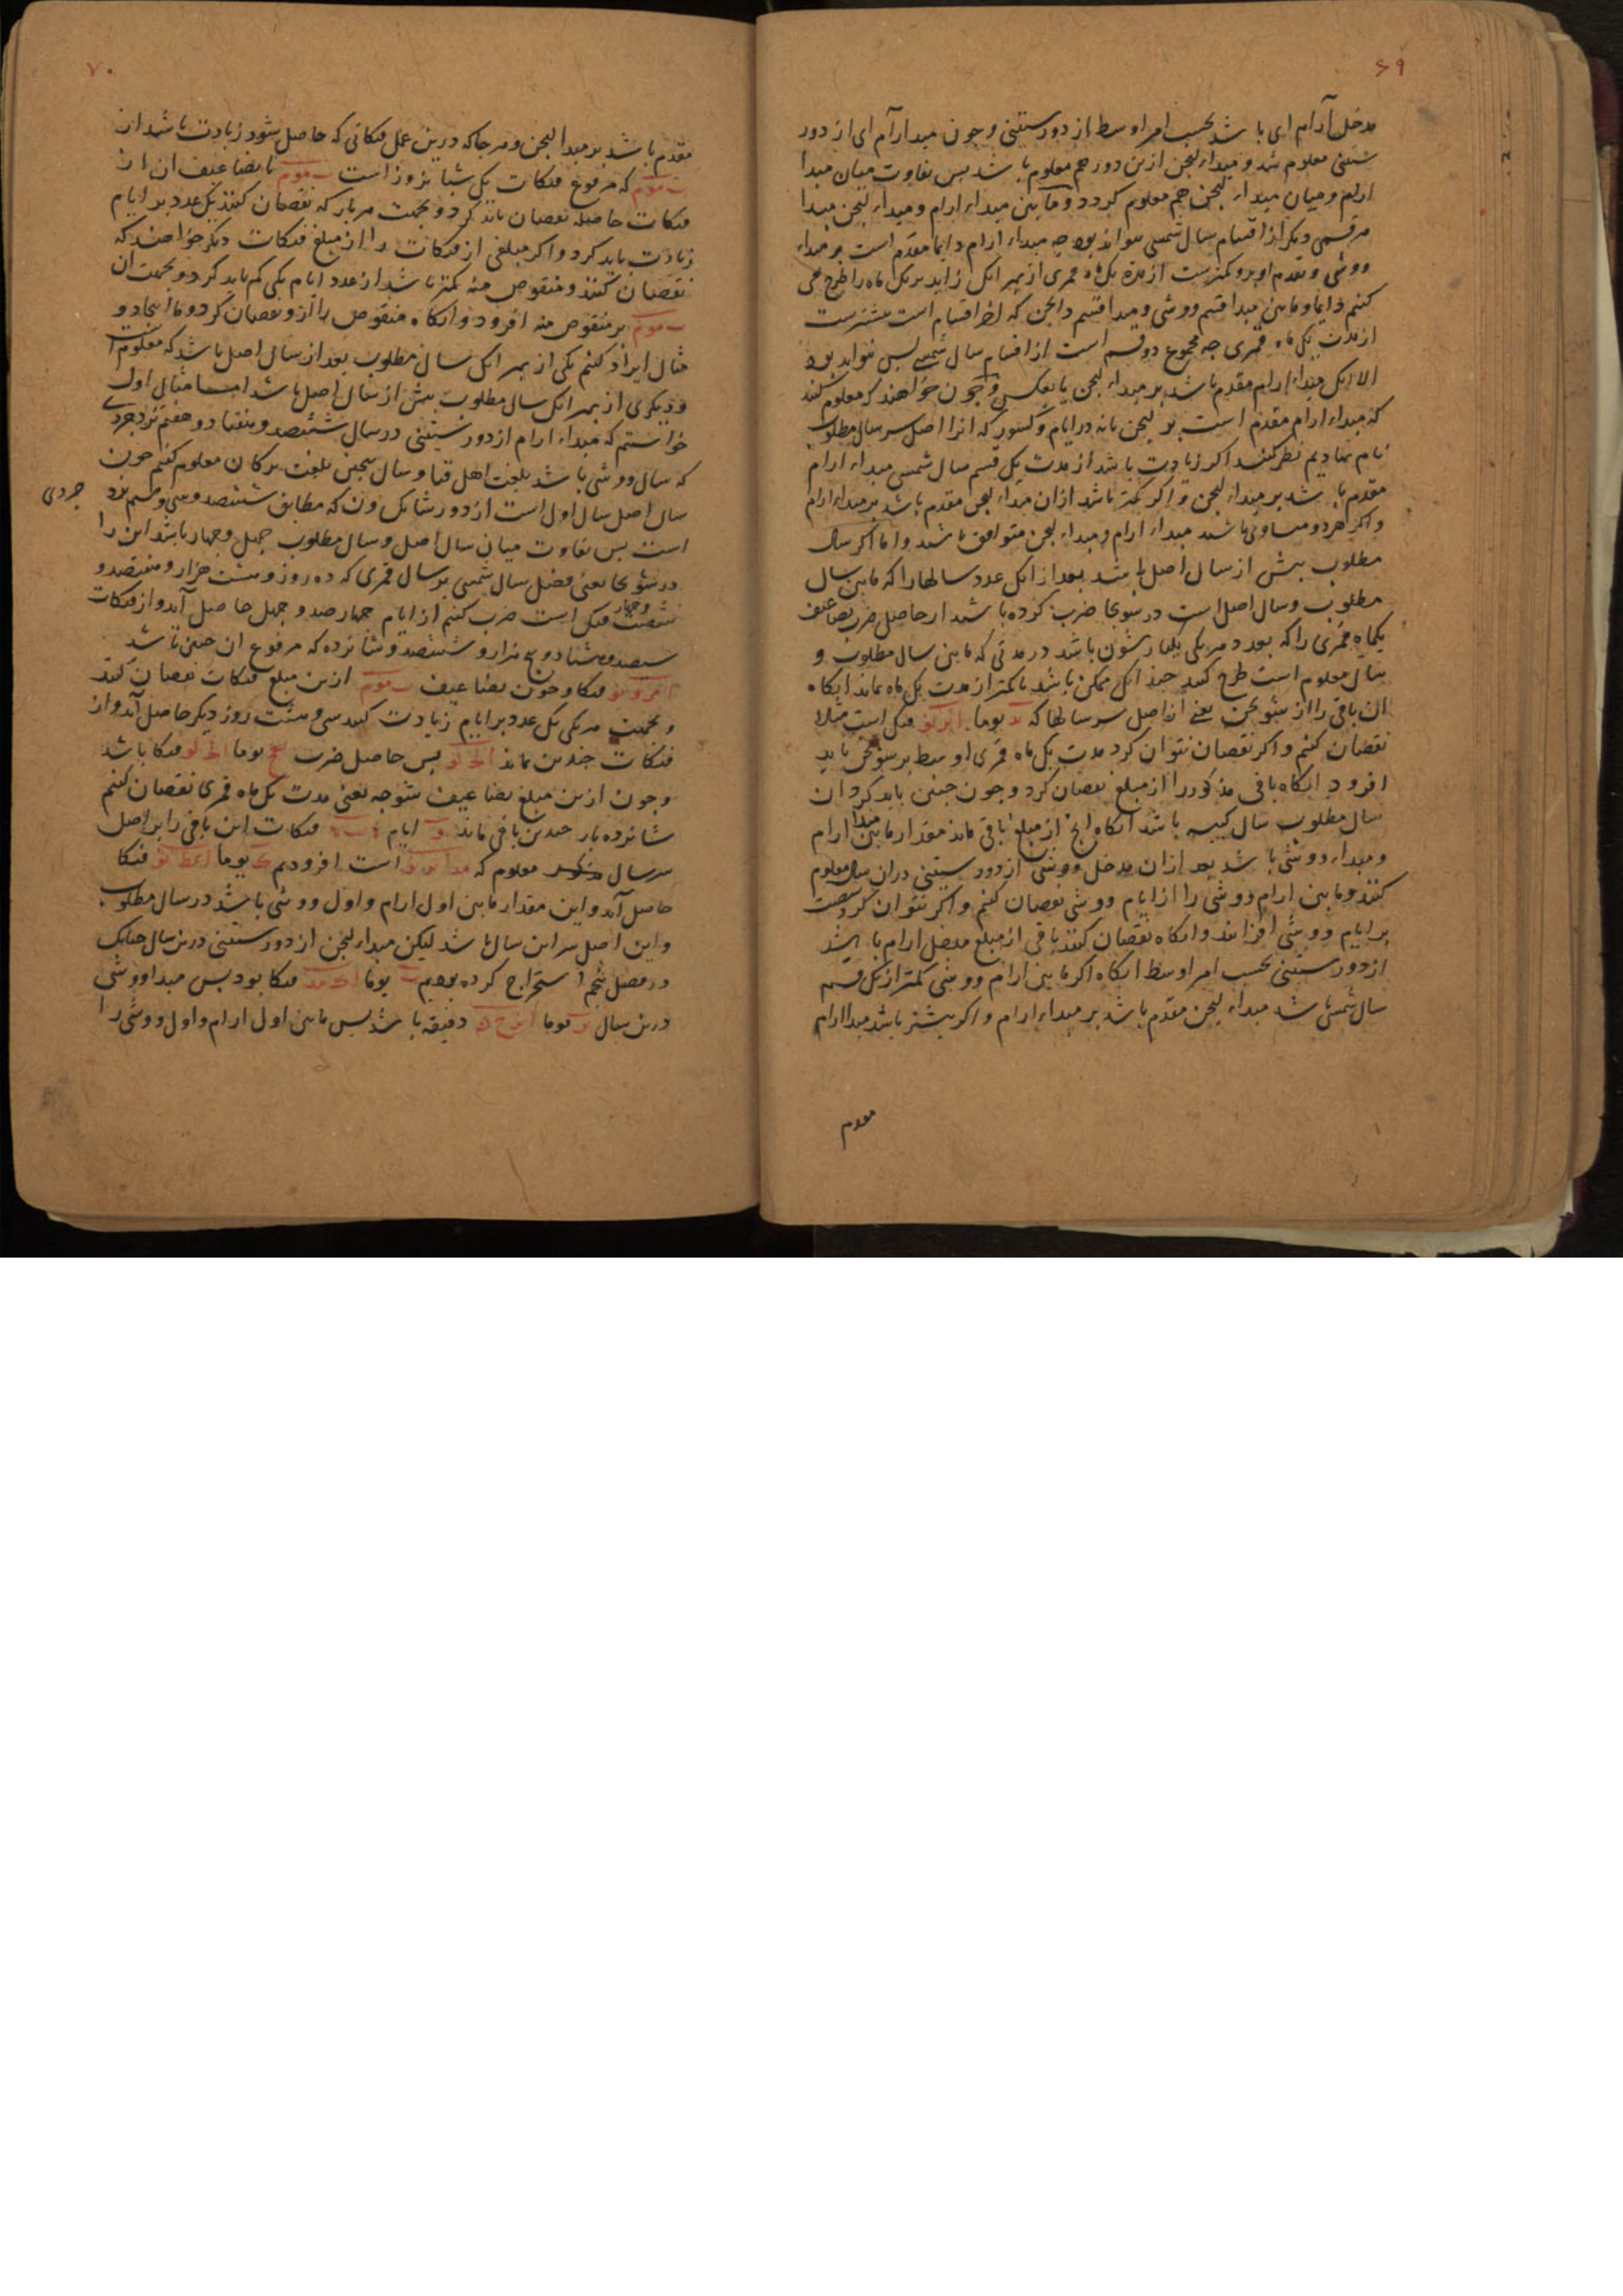 ۶۹
مدخل آرام ای باشد بحسب امر اوسط از دور ستینی و چون مبدا آرام ای از دور
ستینی معلوم شد و مبداء لیجن ازین دور هم معلوم باشد پس تفاوت میان مبدا
و میان مبداء لیجن هم معلوم کردد و مابین مبداء ارام و مبداء لیجن مبدا
هر قسمی دیکر از اقسام سال شمسی نتواند بود چه مبداء ارام دایما مقدم است بر مبداء
ووشی و تقدم او برو کمترست از مدة یک ماه قمری از بهر انک زاید بر یک ماه را طرح می
کنیم دایما و مابین مبدا قسم ووشی و مبدا قسم دایجن که اخر اقسام است بیشترست
از مدت یک ماه قمری چه مجموع دو قسم است از اقسام سال شمسی پس نتواند بود
الا انک مبداء ارام مقدم باشد بر مبداء لیجن یا بعکس و چون خواهند که معلوم کنند
که مبداء ارام مقدم است بر لیجن یا نه در ایام و کسور که انرا اصل سر سال مطلوب
نام نهادیم نظر کنند اکر زیادت باشد از مدت یک قسم سال شمسی مبداء ارام
مقدم باشد بر مبداء لیجن و اکر کمتر باشد ازان مبداء لیجن مقدم باشد بر مبداء ارام
و اکر هر دو مساوی باشد مبداء ارام و مبداء لیجن متوافق باشند و اما اکر سال
مطلوب پیش از سال اصل باشد بعد از انک عدد سالها را که مابین سال
مطلوب و سال اصل است در شوبحا ضرب کرده باشد از حاصل ضرب تضاعیف
یکماه قمری را که بعدد هر یکی یکبار شون باشد در مدتی که مابین سال مطلوب و
سال معلوم است طرح کنند چند انک ممکن باشد تا کمتر از مدت یک ماه بماند انکاه
ان باقی را از شونجن یعنی از اصل سر سالها که یوما فنک است مثلا
نقصان کنیم و اکر نقصان نتوان کرد مدت یک ماه قمری اوسط بر شونجن باید
افزود انکاه باقی مذکور را از مبلغ نقصان کرد و چون چنین باید کرد ان
سال مطلوب سال کبیسه باشد انکاه انچ از مبلغ باقی ماند مقدار مابین مبدا ارام
و مبداء ووشی باشد بعد ازان مدخل ووشی از دور ستینی دران سال معلوم
کنند و مابین ارام ووشی را از ایام ووشی نقصان کنیم و اکر نتوان کرد شصت
بر ایام ووشی افزایند و انکاه نقصان کنند باقی از مبلغ مدخل ارام باشد
از دور ستینی بحسب امر اوسط انکاه اکر مابین ارام ووشی کمتر از یک قسم
سال شمسی باشد مبداء لیجن مقدم باشد بر مبداء ارام و اکر بیشتر باشد مبدا ارام
مقدم
۷۰
مقدم باشد بر مبدا لیجن و هر جا که درین عمل فنکاتی که حاصل شود زیادت باشد از
که مرفوع فنکات یک شبانروز است یا تضاعیف ان از
فنکات حاصله نقصان باید کرد و بجهت هر بار که نقصان کنند یک عدد بر ایام
زیادت باید کرد و اکر مبلغی از فنکات را از مبلغ فنکات دیکر خواهند که
نقصان کنند و منقوص منه کمتر باشد از عدد ایام یکی کم باید کرد و بجهت ان
بر منقوص منه افزود و انکاه منقوص را ازو نقصان کرد و ما اینجا دو
مثال ایراد کنیم یکی از بهر انک سال مطلوب بعد از سال اصل باشد که معلوم است
و دیکری از بهر انک سال مطلوب پیش از سال اصل باشد اما مثال اول
خواستیم که مبداء ارام از دور ستینی در سال ششصد و هفتاد و هفتم یزدجردی
که سال ووشی باشد بلغت اهل قتا و سال بلغت ترکان معلوم کنیم چون
سال اصل سال اول است از دور شانک ون که مطابق ششصد و سی و سیم یزد
جردی
است پس تفاوت میان سال اصل و سال مطلوب چهل و چهار باشد این را
در شوبحا یعنی فضل سال شمسی بر سال قمری که ده روز و هشت هزار و هفتصد و
شصت و چهار فنک است ضرب کنیم از ایام چهار صد و چهل حاصل آید و از فنکات
سیصد و هشتاد و پنج هزار و ششصد و شانزده که مرفوع ان چنین باشد
فنکا و چون تضاعیف ازین مبلغ فنکات نقصان کنند
و بجهت هر یکی یک عدد بر ایام زیادت کنند سی و هشت روز دیکر حاصل آید و از
فنکات چندین ماند پس حاصل ضرب یوما فنکا باشد
و چون ازین مبلغ تضاعیف شوجه یعنی مدت یک ماه قمری نقصان کنیم
شانزده بار چندین باقی ماند ایام فنکات این باقی را بر اصل
سر سال معلوم که است افزودیم یوما فنکا
حاصل آمد و این مقدار مابین اول ارام و اول ووشی باشد در سال مطلوب
و این اصل سر این سال باشد لیکن مبداء لیجن از دور ستینی درین سال چنانک
در فصل پنجم استخراج کرده بودیم یوما فنکا بود پس مبدا ووشی
درین سال یوما دقیقه باشد پس مابین اول ارام و اول ووشی را